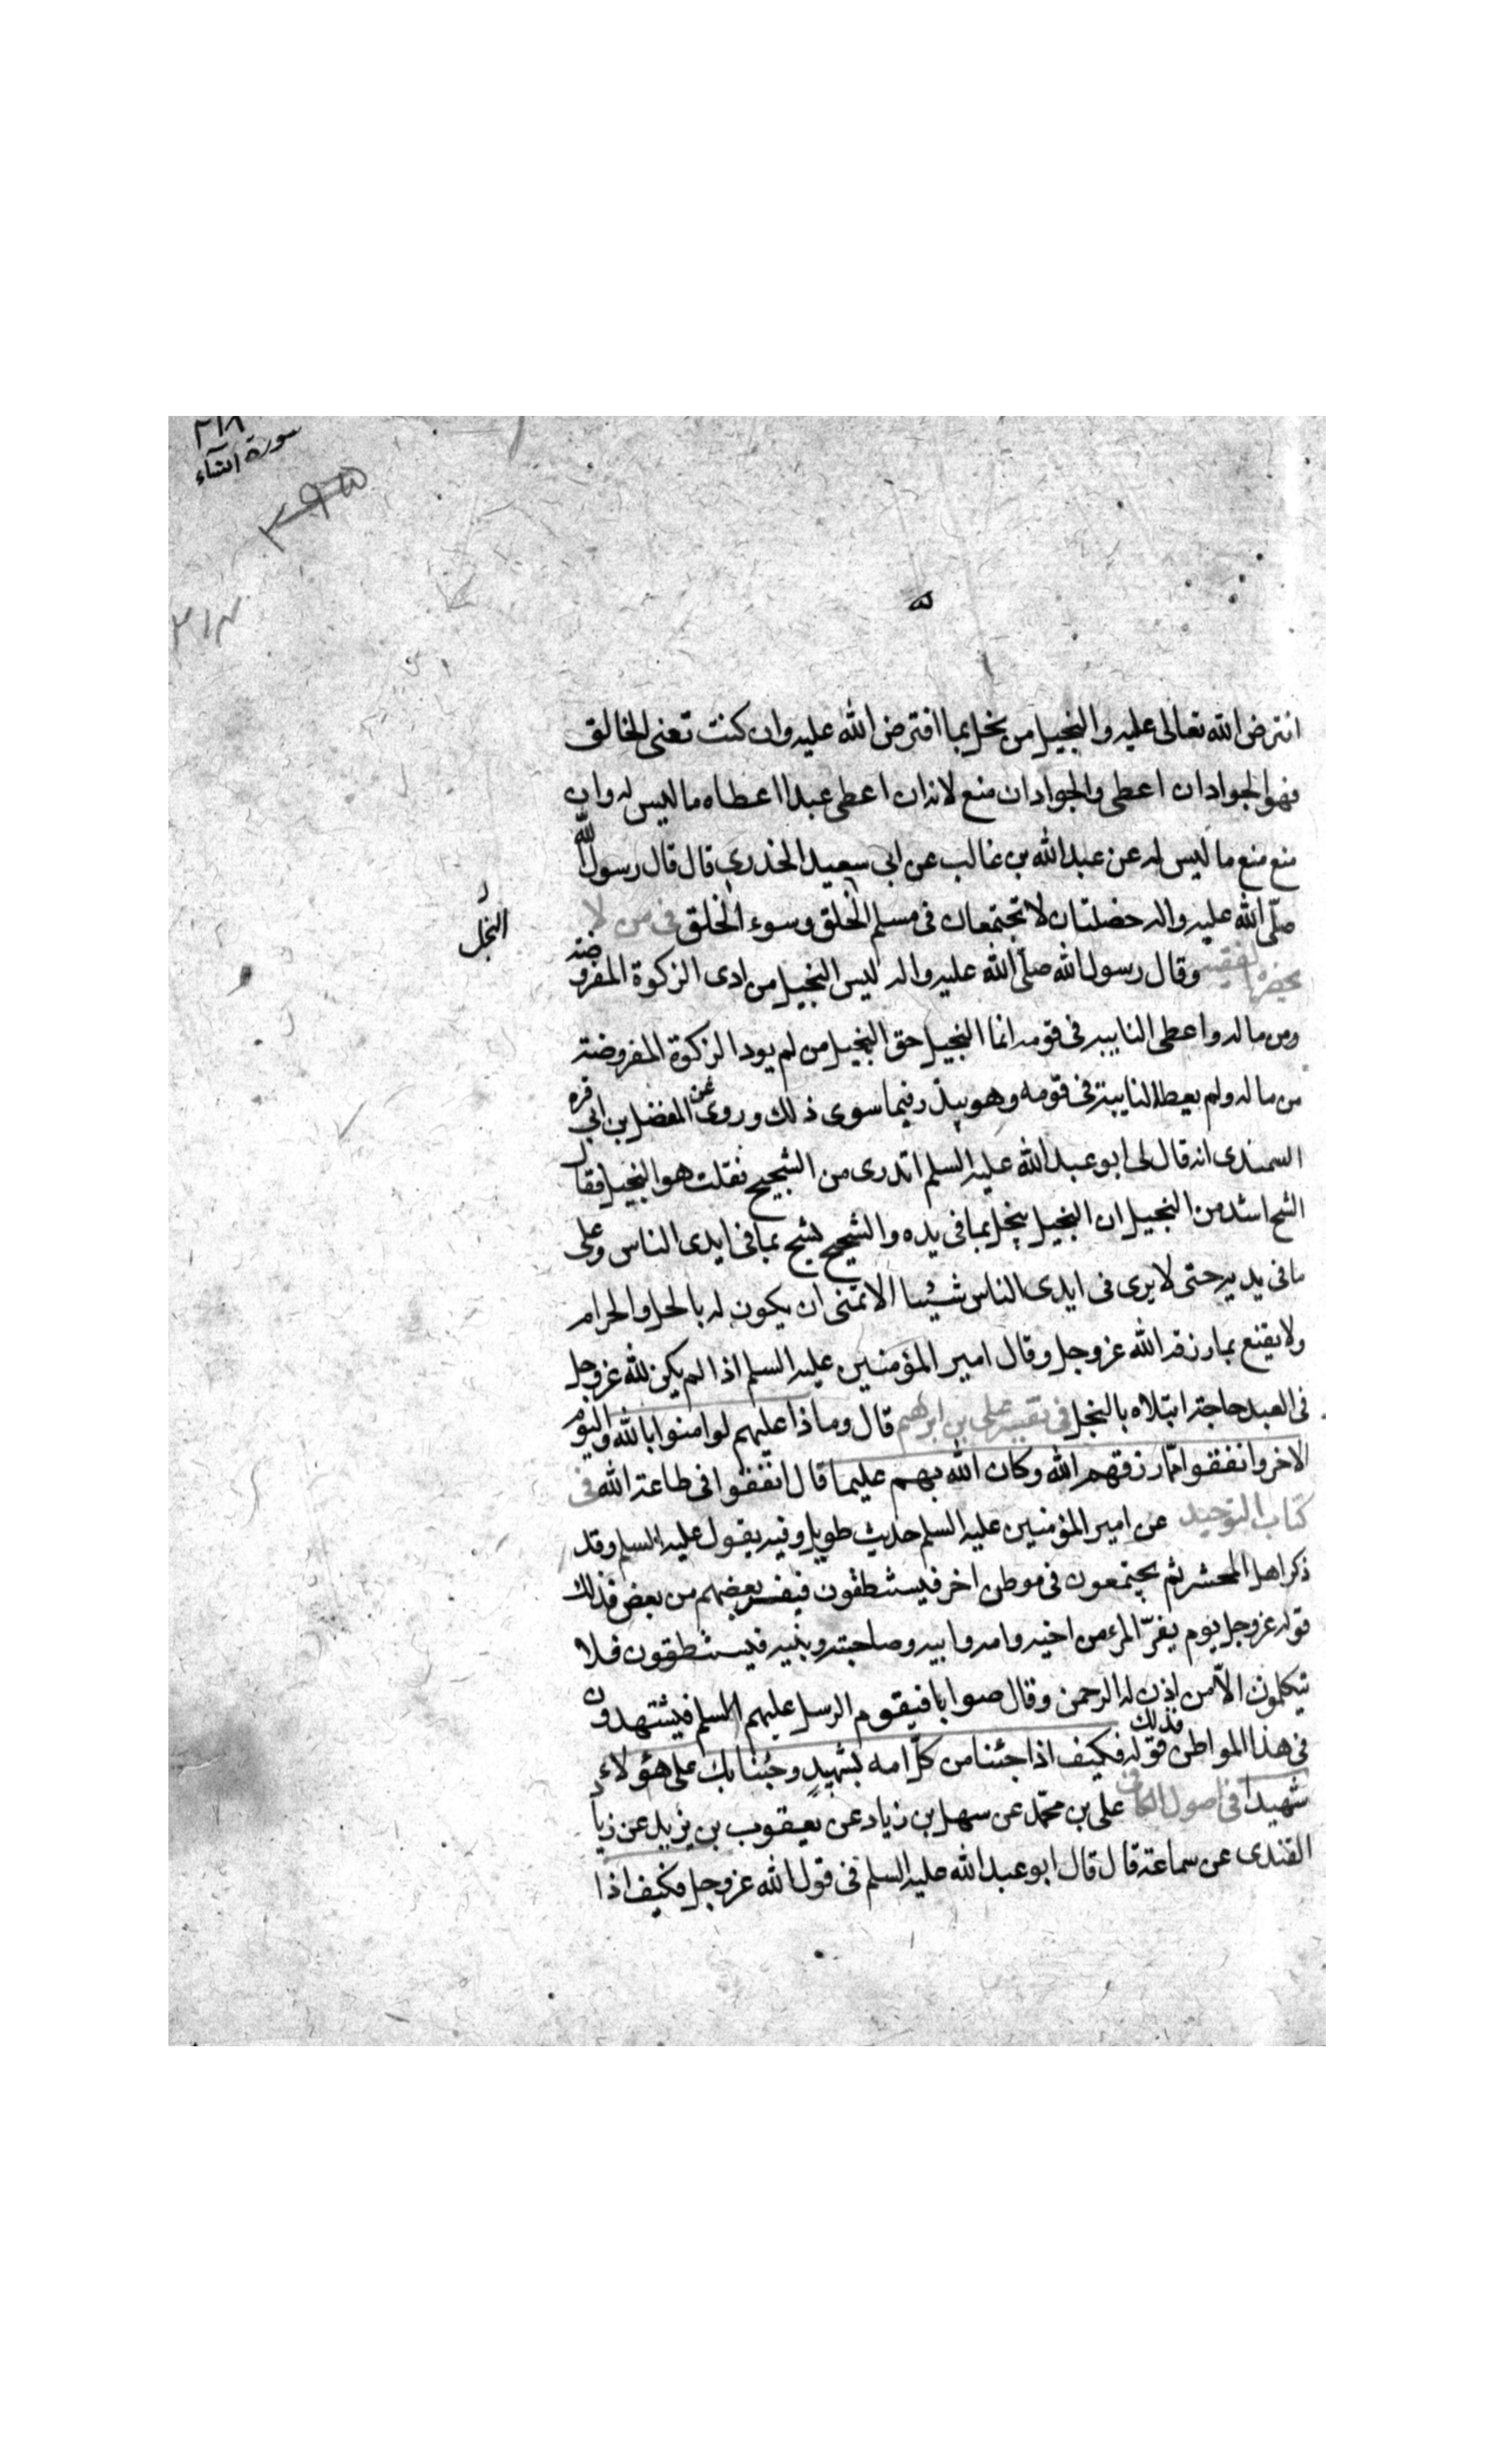 ٣١٨
سورة النساء
٣٩٥
افترض الله تعالى عليه والبخيل من بخل بما افترض الله عليه وان كنت تعنى الخالق
فهو الجواد ان اعطى والجواد ان منع لانه ان اعطى عبدا اعطاه ما ليس له وان
منع منع ما ليس له عن عبد الله بن غالب عن ابى سعيد الخدرى قال قال رسول الله
صلّى الله عليه واله خصلتان لا تجتمعان فى مسلم الخلق وسوء الخلق فى من لا
البخل
يحضره الفقيه وقال رسول الله صلّى الله عليه واله ليس البخيل من ادى الزكوة المفروضة
ومن ماله واعطى النايبه فى قومه انما البخيل حق البخيل من لم يود الزكوة المفروضة
من ماله ولم يعط النايبة فى قومه وهو يبذر فيما سوى ذلك وروى عن المفضل بن ابى قره
السمندى انه قال لى ابو عبد الله عليه السلم اتدرى من الشحيح فقلت هو البخيل فقال
الشح اشد من البخيل ان البخيل يبخل بما فى يده والشحيح يشح بما فى ايدى الناس وعلى
ما فى يديه حتى لا يرى فى ايدى الناس شيئا الا تمنى ان يكون له بالحل والحرام
ولا يقنع بما رزقه الله عز وجل وقال امير المؤمنين عليه السلم اذا لم يكن لله عز وجل
فى العبد حاجة ابتلاه بالبخل فى تفسير على بن ابرهيم قال وماذا عليهم لو امنوا بالله واليوم
الاخر وانفقوا ممّا رزقهم الله وكان الله بهم عليما قال انفقوا فى طاعة الله فى
كتاب التوحيد عن امير المؤمنين عليه السلم حديث طويل وفيه يقول عليه السلم وقد
ذكر اهل المحشر ثم يجتمعون فى موطن اخر فيستنطقون فيفر بعضهم من بعض فذلك
قوله عز وجل يوم يفرّ المرء من اخيه وامه وابيه وصاحبته وبنيه فيستنطقون فلا
يتكلمون الّا من اذن له الرحمن وقال صوابا فيقوم الرسل عليهم السلم فيشهدون
فى هذا المواطن فذلك قوله فكيف اذا جئنا من كلّ امه بشهيدٍ وجئنا بك على هؤلاء
شهيداً فى اصول الكافى على بن محمّد عن سهل بن زياد عن يعقوب بن يزيد عن زياد
القندى عن سماعة قال قال ابو عبد الله عليه السلم فى قول الله عز وجل فكيف اذا